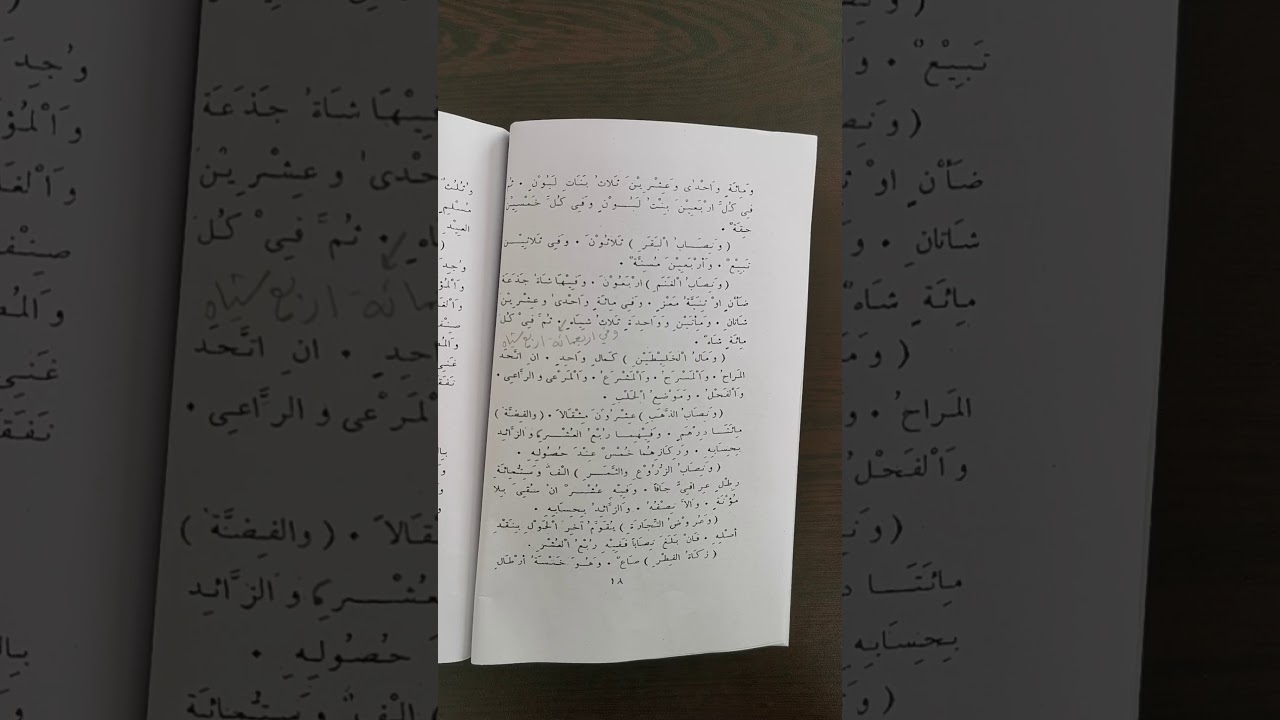 وَمِائَةٍ وَاَحْدٰى وَعِشْرِيْنَ ثَلَاثُ بَنَاتِ لَبُوْنٍ • ثُمَّ
فِي كُلِّ اَرْبَعِيْنَ بِنْتُ لَبُوْنٍ وَفِي كُلِّ خَمْسِيْنَ
حِقَّةٌ •
( وَنِصَابُ الْبَقَرِ ) ثَلَاثُوْنَ • وَفِي ثَلَاثِيْنَ
تَبِيْعٌ • وَاَرْبَعِيْنَ مُسِنَّةٌ •
( وَنِصَابُ الْغَنَمِ ) اَرْبَعُوْنَ • وَفِيْهَا شَاةٌ جَذَعَةُ
ضَأْنٍ اَوْ ثَنِيَّةُ مَعْزٍ • وَفِي مِائَةٍ وَاَحْدٰى وَعِشْرِيْنَ
شَاتَانِ • وَمِأَتَيْنِ وَوَاحِدَةٍ ثَلَاثُ شِيَاهٍ • ثُمَّ فِيْ كُلِّ
مِائَةٍ شَاةٌ •
وفي اربعمائة اربع شياه
( وَمَالُ الْخَلِيْطَيْنِ ) كَمَالٍ وَاحِدٍ • اِنِ اتَّحَدَ
المَرَاحُ • وَالْمَسْرَحُ • وَالْمَشْرَعُ • وَالْمَرْعٰى وَالرَّاعِى •
وَالْفَحْلُ • وَمَوْضِعُ الْحَلْبِ •
( وَنِصَابُ الذَّهَبِ ) عِشْرُوْنَ مِثْقَالًا • ( وَالفِضَّةِ )
مِائَتَا دِرْهَمٍ • وَفِيْهِمَا رُبْعُ الْعُشْرِ وَالزَّائِدُ
بِحِسَابِهِ • وَرِكَازِهِمَا خُمْسٌ عِنْدَ حُصُوْلِهِ •
( وَنِصَابُ الزُّرُوْعِ وَالثَّمَرِ ) اَلْفٌ وَسِتُّمِائَةِ
رِطْلٍ عِرَاقِيٍّ جَافًّا • وَفِيْهِ عُشْرٌ اِنْ سُقِيَ بِلَا
مُؤْنَةٍ • وَاِلَّا نِصْفُهُ • وَالزَّائِدُ بِحِسَابِهِ •
( وَعُرُوْضُ التِّجَارَةِ ) يُقَوَّمُ آخِرَ الْحَوْلِ بِنَقْدِ
اَصْلِهِ • فَاِنْ بَلَغَ نِصَابًا فَفِيْهِ رُبْعُ الْعُشْرِ •
( زَكَاةُ الفِطْرِ ) صَاعٌ • وَهُوَ خَمْسَةُ اَرْطَالٍ
١٨